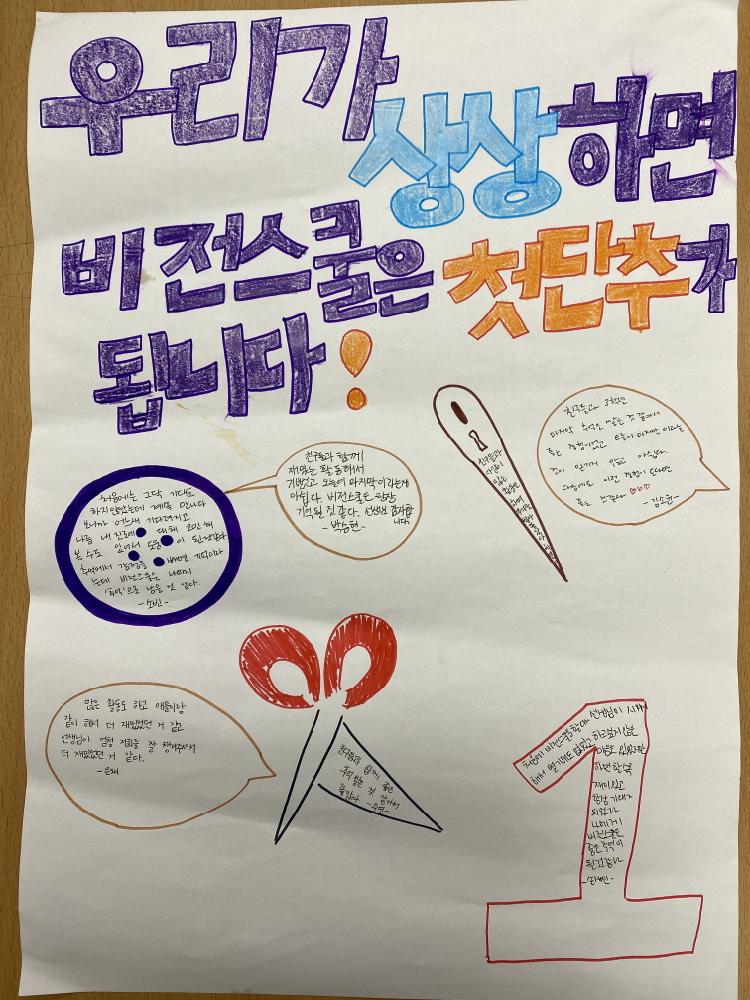 우리가
상상하면
비전스쿨은 첫단추가
됩니다!
처음에는 그닥 기대도
하지않았는데 계속 만나다
보니까 어느새 기다려지고
나를, 내 진로에 대해 고민해
본 수도 있어서 도움이 된것같다
추억에서
는데 비전스쿨은 나에게
'추억'으로 남을 것 같다.
-소빈-
친구들과 함께
재밌는 활동해서
기뻤었고 오늘이 마지막이라는게
아쉽다. 비전스쿨은 항상
기억될 것 같다. 선생님 감사합
니다
-박승현-
친구들과
친구들과 3학년
마지막 추억을 쌓는 것 같아서
좋은 경험이었고 오늘이 마지막 이라는
것이 믿기지 않고 아쉽다
다음에도 이런 경험이 된다면
좋은 것 같다 ♡♡♡
많은 활동도 하고 애들이랑
같이 해서 더 재밌었던 거 같고
선생님이 엄청 저희를 잘 챙겨주셔서
더 재밌었던 거 같다.
-은채-
친구들과 함께 좋은
추억 쌓은 것 같아서
좋았다
처음에 비전스쿨을 할때 선생님이 시켜
해서 별 기대도 없었고 하고싶지 않은
마음도 있었지만
하면 할수록
재미있고
항상 기대가
되었다
나에게
비전스쿨은
좋은 추억이
된 것 같다